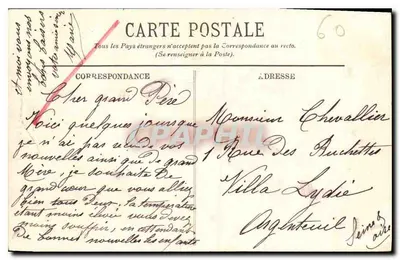 60
CARTE POSTALE
Tous les Pays étrangers n'acceptent pas la Correspondance au recto.
(Se renseigner à la Poste).
CORRESPONDANCE
ADRESSE
Cher grand Père
Voici quelques jours que
je n'ai pas vendu vos
nouvelles ainsi que de grand
Mère, je souhaite de
grand cœur que vous alliez
bien tous deux, la température
étant moins élevée vous devez
moins souffrir, en attendant
de bonnes nouvelles les enfants
et moi vous
envoyons nos
bons baisers
Monsieur Chevallier
1 Rue Des Ruchettes
Villa Lydie
Argenteuil
Seine &
Oise